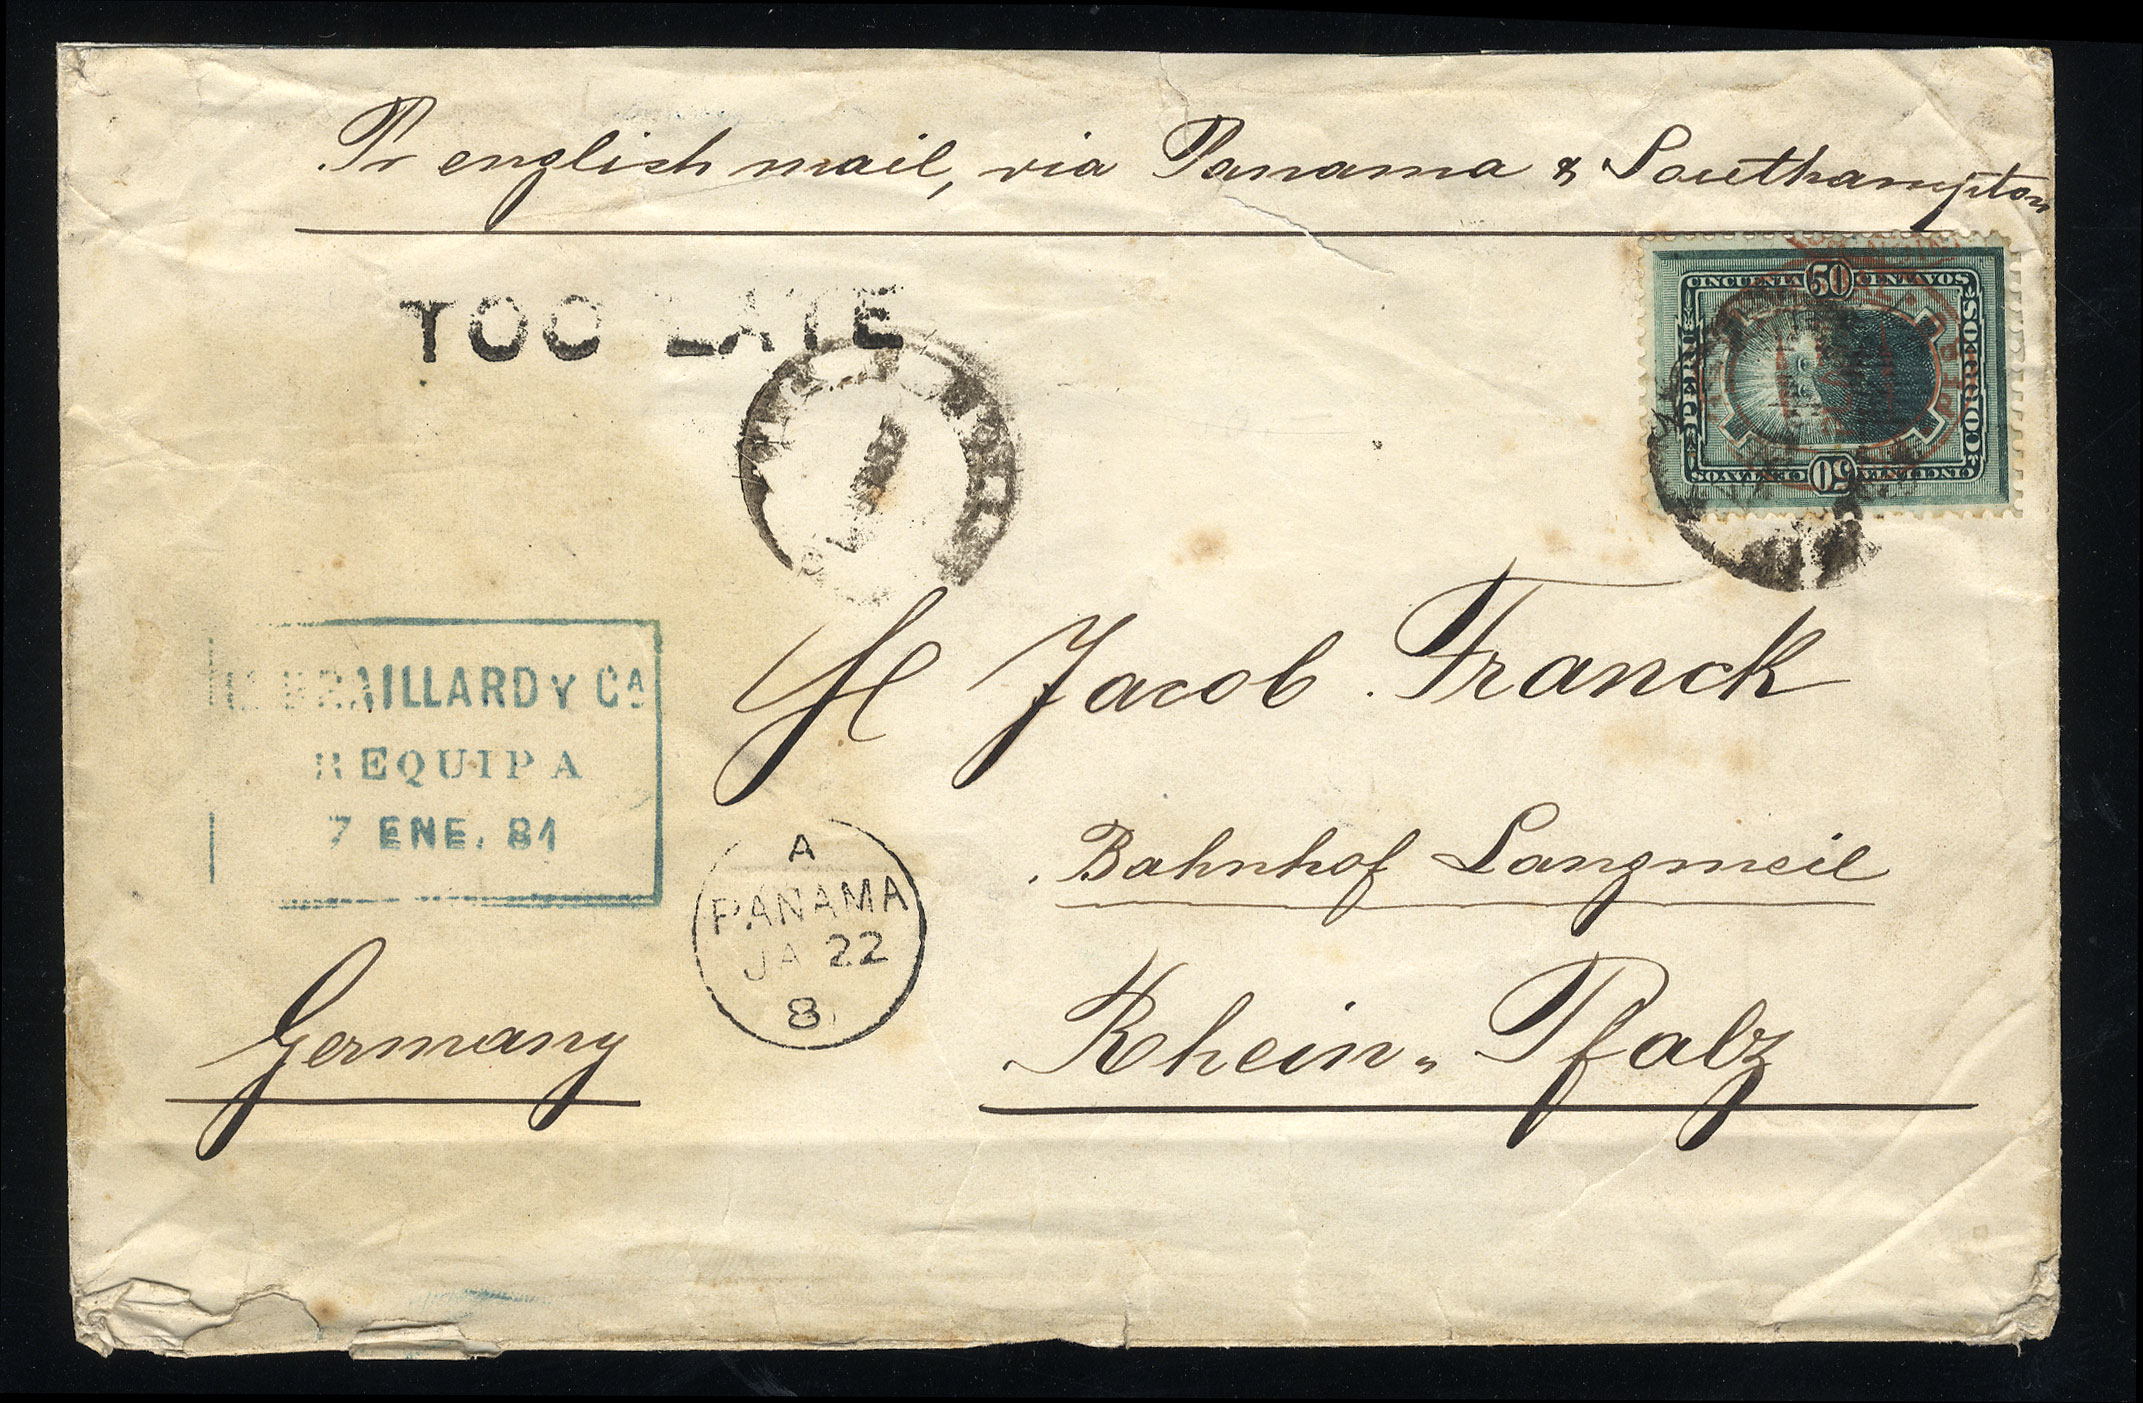 Pr english mail, via Panama & Southampton
TOO LATE
CINCUENTA 50 CENTAVOS
PERU
CORREOS
CINCUENTA 50 CENTAVOS
H Jacob Franck
BRAILLARD Y CA
REQUIPA
7 ENE. 81
Bahnhof Langmeil
A
PANAMA
JA 22
8
Germany
Rhein-Pfalz